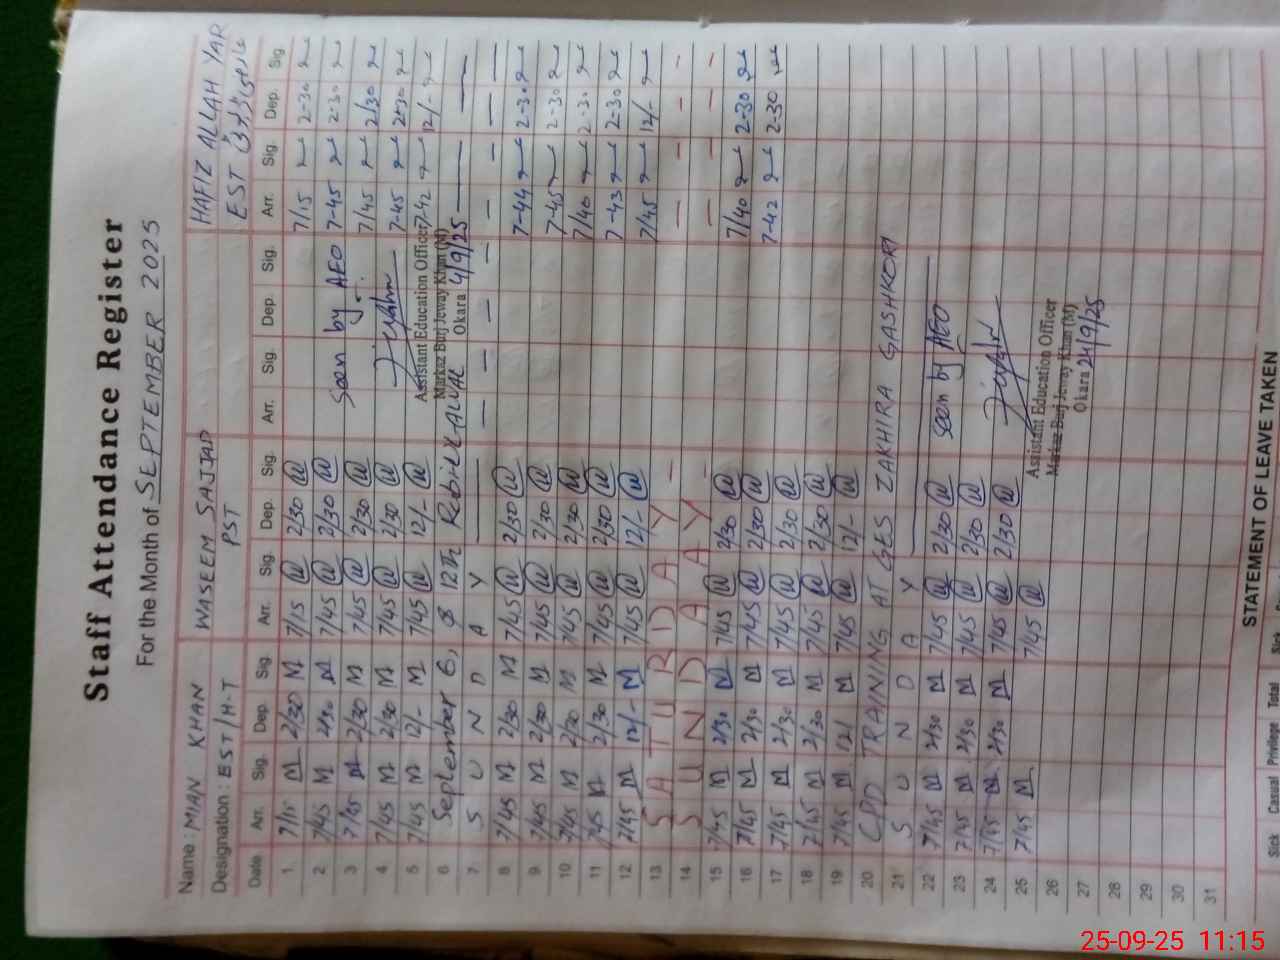 Staff Attendance Register
For the Month of SEPTEMBER 2025
Name : MIAN KHAN WASEEM SAJJAD HAFIZ ALLAH YAR
Designation : EST/H-T PST EST
Date Arr. Sig. Dep. Sig. Arr. Sig. Dep. Sig. Arr. Sig. Dep. Sig. Arr. Sig. Dep. Sig
1. 7/15 M 2/30 M 7/15 W 2/30 W 7/15 2-30
2 7/45 M 2/30 M 7/45 W 2/30 W Seen by AEO 7-45 2-30
3 7/45 M 2/30 M 7/45 W 2/30 W 7/45 2/30
4 7/45 M 2/30 M 7/45 W 2/30 W 7-45 2-30
5 7/45 M 12/- M 7/45 W 12/- W Assistant Education Officer 7-42 12/-
Markaz Burj Jeway Khan (M)
6 September 6, & 12th Rabi ul AWAL Okara 4/9/25
7 S U N D A Y
8 7/45 M 2/30 M 7/45 W 2/30 W 7-44 2-30
9 7/45 M 2/30 M 7/45 W 2/30 W 7-45 2-30
10 7/45 M 2/30 M 7/45 W 2/30 W 7/40 2-30
11 7/45 M 2/30 M 7/45 W 2/30 W 7-43 2-30
12 7/45 M 12/- M 7/45 W 12/- W 7/45 12/-
13 S A T U R D A Y
14 S U N D A A Y
15 7/45 M 2/30 M 7/45 W 2/30 W
16 7/45 M 2/30 M 7/45 W 2/30 W 7/40 2-30
17 7/45 M 2/30 M 7/45 W 2/30 W 7-42 2-30
18 7/45 M 2/30 M 7/45 W 2/30 W
19 7/45 M 12/ M 7/45 W 12/- W
20 CPD TRAINING AT GES ZAKHIRA GASHKORI
21 S U N D A Y
22 7/45 M 2/30 M 7/45 W 2/30 W Seen by AEO
23 7/45 M 2/30 M 7/45 W 2/30 W
24 7/45 M 2/30 M 7/45 W 2/30 W
25 7/45 M 7/45 W Assistant Education Officer
26 Markaz Burj Jeway Khan (M)
27 Okara 24/9/25
28
29
30
31
STATEMENT OF LEAVE TAKEN
Sick Casual Privilege Total
25-09-25 11:15